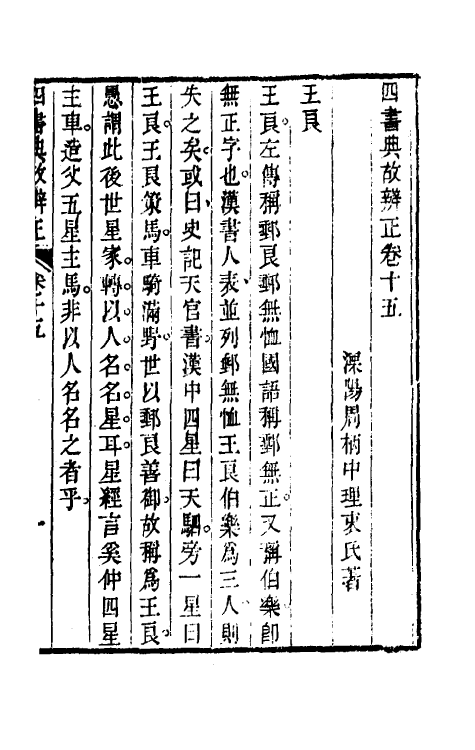 四書典故辨正卷十五
溧陽周柄中理衷氏著
王良
王良左傳稱郵良郵無恤國語稱郵無正又稱伯樂卽
無正字也漢書人表並列郵無恤王良伯樂爲三人則
失之矣或曰史記天官書漢中四星曰天駟旁一星曰
王良王良策馬車騎滿野世以郵良善御故稱爲王良
愚謂此後世星家轉以人名名星耳星經言奚仲四星
主車造父五星主馬非以人名名之者乎
四書典故辨正
卷十五